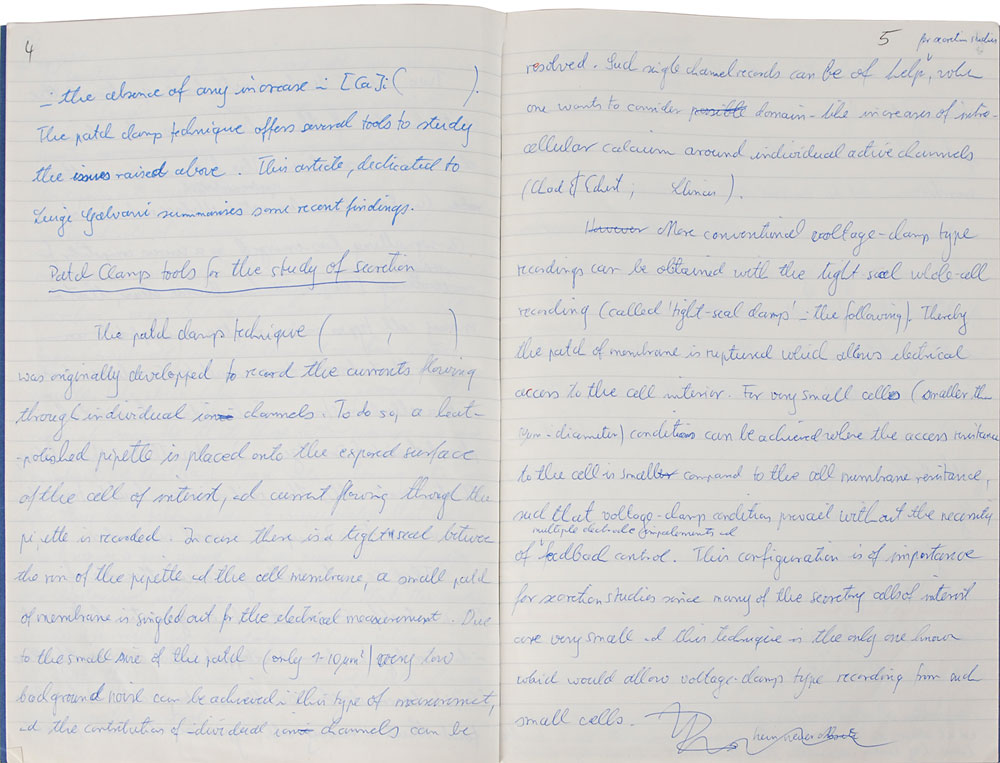 4
in the absence of any increase in [Ca]i (          ).
The patch clamp technique offers several tools to study
the issues raised above. This article, dedicated to
Luigi Galvani summarises some recent findings.
Patch Clamps tools for the study of secretion
The patch clamp technique (        ,        )
was originally developped to record the currents flowing
through individual ionic channels. To do so, a heat-
-polished pipette is placed onto the exposed surface
of the cell of interest, and current flowing through the
pipette is recorded. In case there is a tight seal between
the rim of the pipette and the cell membrane, a small patch
of membrane is singled out for the electrical measurement. Due
to the small size of the patch (only 1-10 µm²) very low
background noise can be achieved in this type of measurement,
and the contribution of individual ionic channels can be
5
for secretion studies
resolved. Such single channel records can be of help, when
one wants to consider possible domain-like increases of intra-
cellular calcium around individual active channels
(Chad & Eckert ; Llinas ).
However More conventional voltage-clamp type
recordings can be obtained with the tight seal whole-cell
recording (called 'tight-seal clamp' in the following). Thereby
the patch of membrane is ruptured which allows electrical
access to the cell interior. For very small cells (smaller than
in diameter) conditions can be achieved where the access resistance
to the cell is smaller compared to the cell membrane resistance,
such that voltage-clamp conditions prevail without the necessity
multiple electrode impalements and
of feedback control. This configuration is of importance
for secretion studies since many of the secretory cells of interest
are very small and this technique is the only one known
which would allow voltage-clamp type recording from such
small cells.